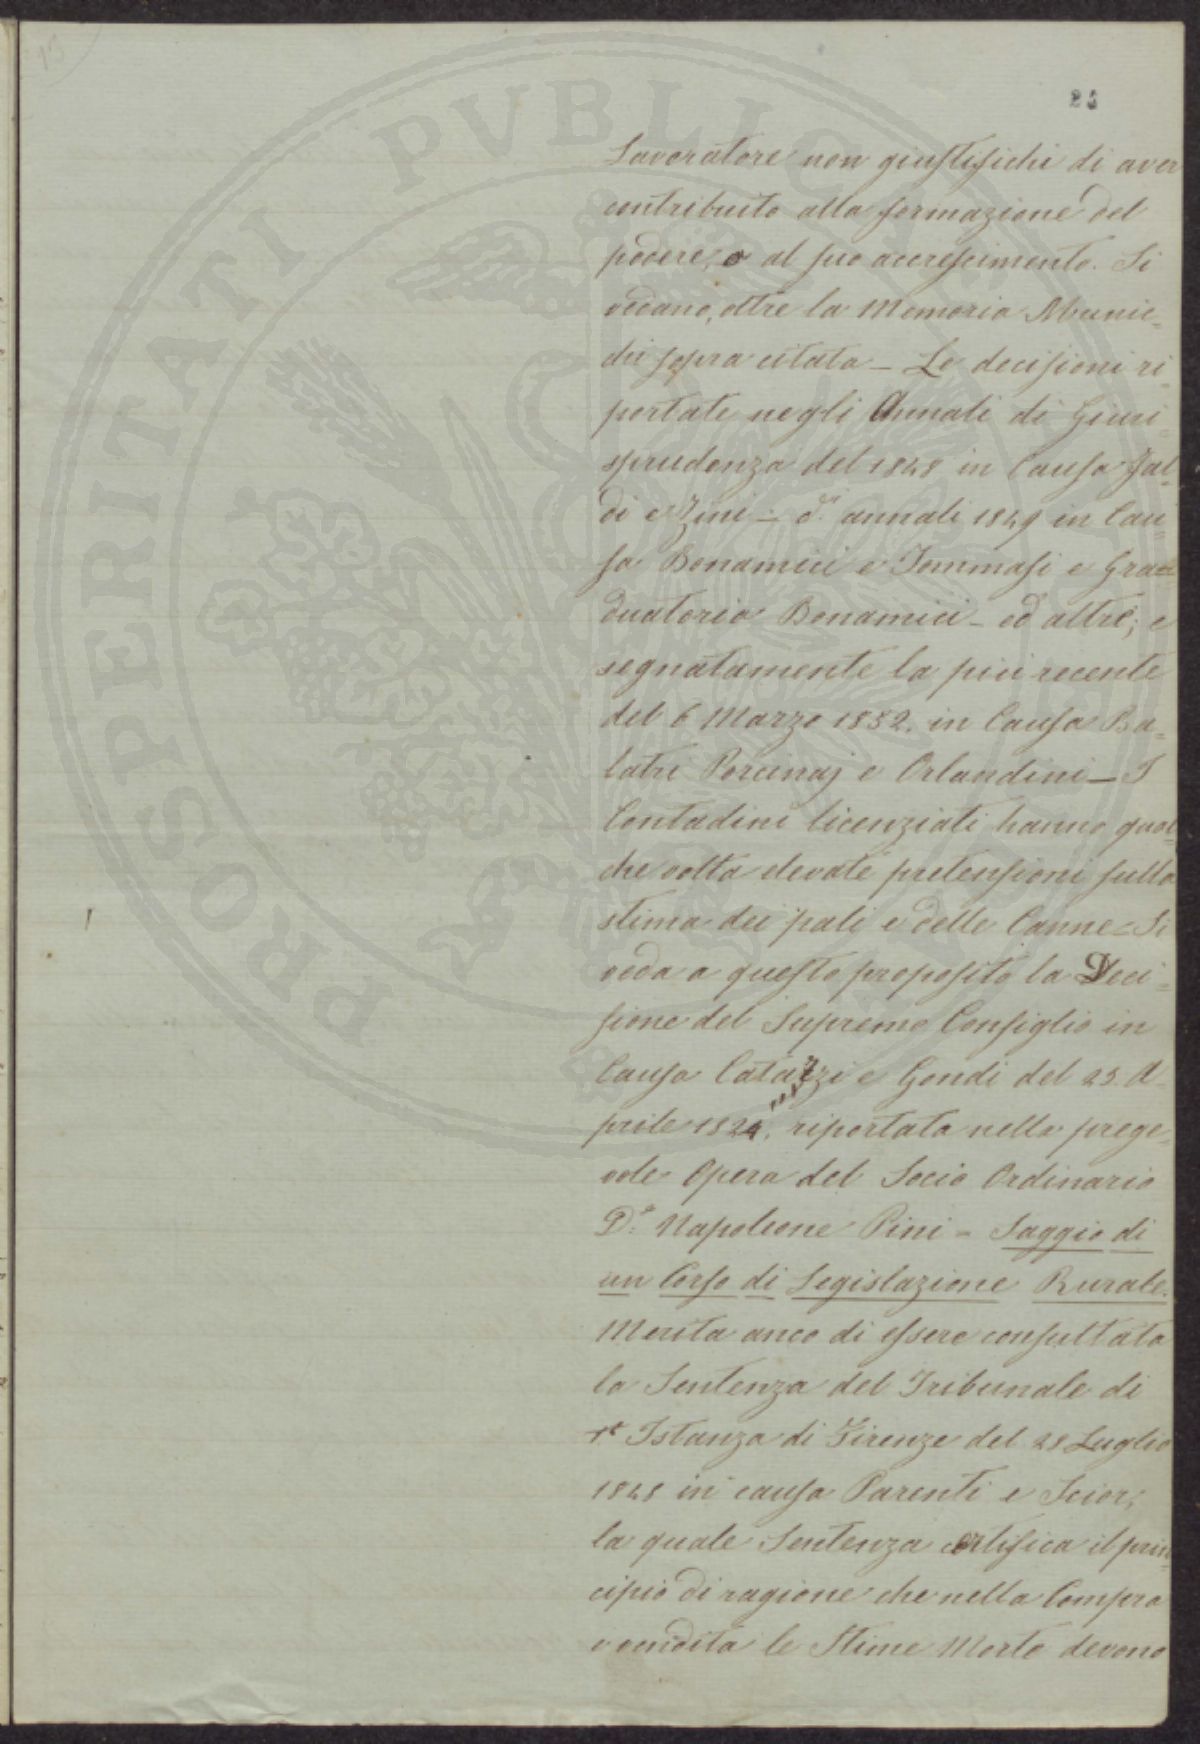 13
25
PROSPERITATI PVBLICAE
Lavoratore non giustifichi di aver
contribuito alla formazione del
podere, o al suo accrescimento. Si
vedano, oltre la Memoria Munic=
chi sopra citata – Le decisioni ri=
portate negli Annali di Giuri=
sprudenza del 1848 in Causa Fal=
di e Zini – d.i annali 1849 in Cau=
sa Bonamici e Tommasi e Gra=
duatoria Bonamici – ed altre; e
segnatamente la più recente
del 6 Marzo 1852. in Causa Ba=
latri Porcinaj e Orlandini – I
Contadini licenziati hanno qual=
che volta elevate pretensioni sulla
stima dei pali e delle Canne = Si
veda a questo proposito la Deci=
sione del Supremo Consiglio in
Causa Catarzi e Gondi del 25. A=
prile 1824. riportata nella prege=
vole Opera del Socio Ordinario
D.e Napoleone Pini = Saggio di
un Corso di Legislazione Rurale.
Merita anco di essere consultata
la Sentenza del Tribunale di
1a Istanza di Firenze del 28 Luglio
1848 in causa Parenti e Scior;
la quale Sentenza certifica il prin=
cipio di ragione che nella Compra
e vendita le Stime Morte devono